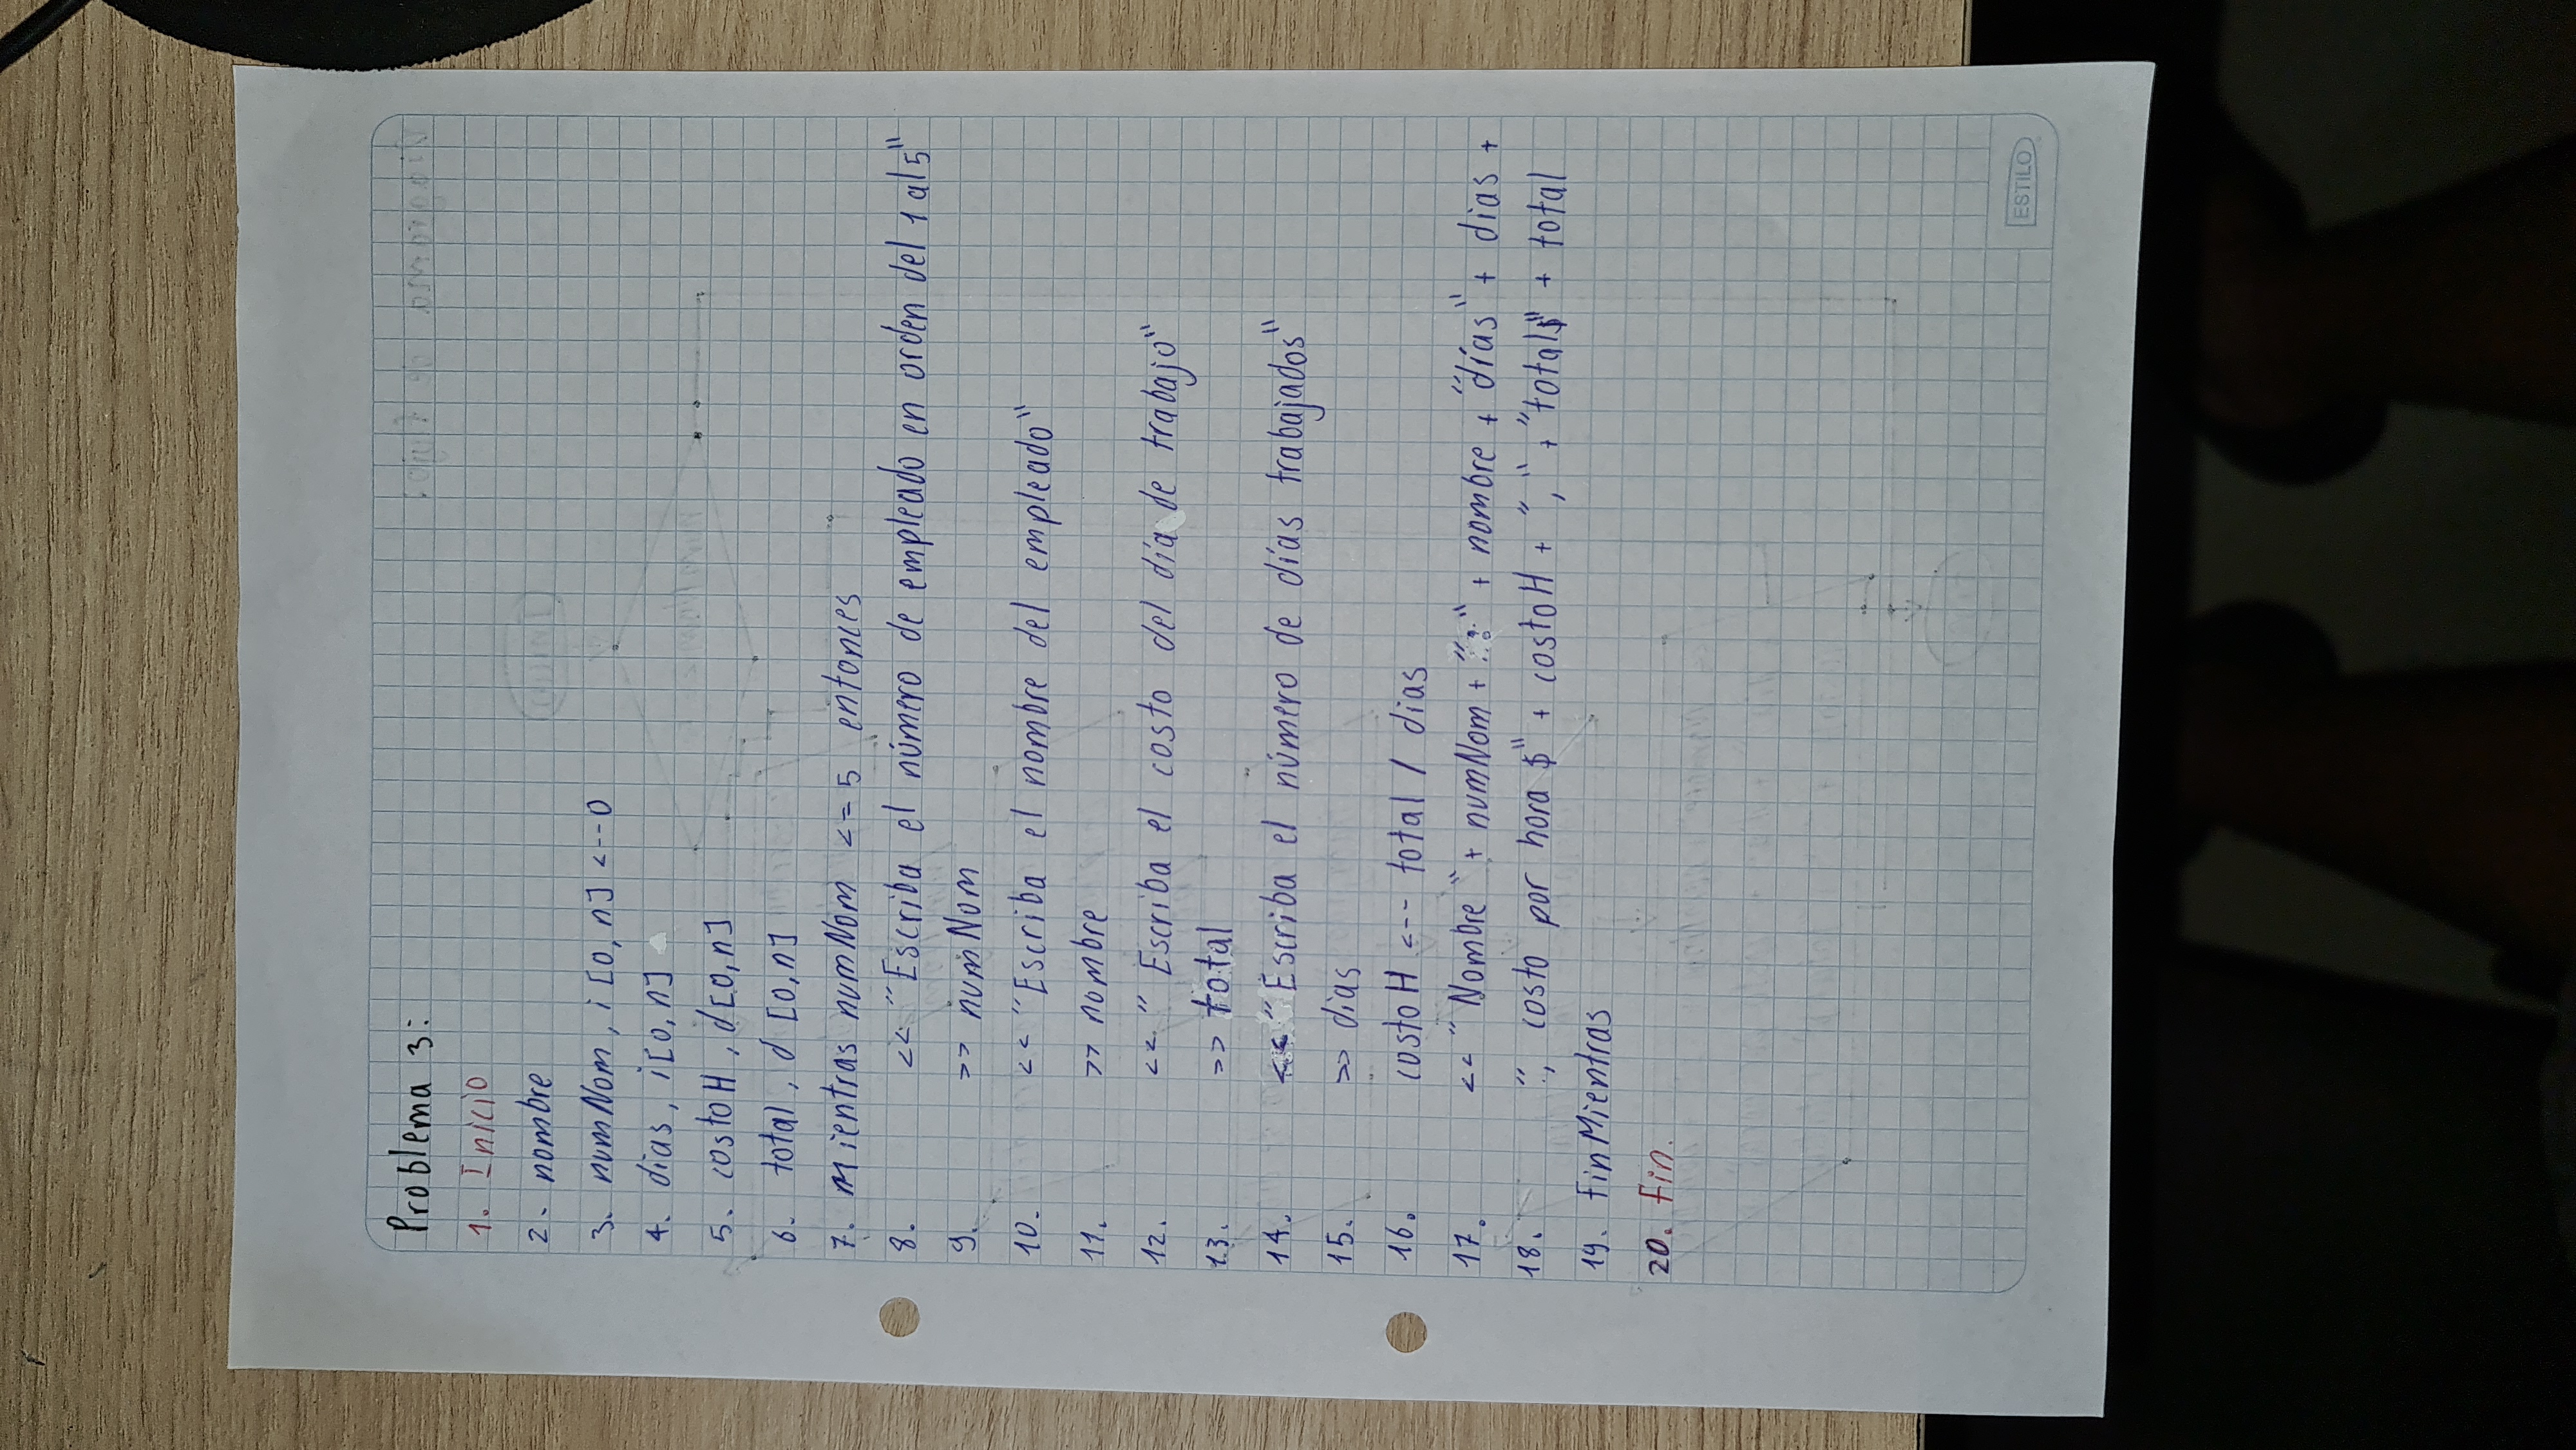 Problema 3:
1. Inicio
2. nombre
3. numNom, i [0, n] <--0
4. dias, i[0, n]
5. costoH, d[0,n]
6. total, d [0,n]
7. Mientras numNom <= 5 entonces
8. << "Escriba el número de empleado en orden del 1 al 5"
9. >> numNom
10. << "Escriba el nombre del empleado"
11. >> nombre
12. << " Escriba el costo del día de trabajo"
13. >> total
14. << "Escriba el número de días trabajados"
15. >> dias
16. costoH <-- total / dias
17. << "Nombre" + numNom + ":" + nombre + "días" + dias +
18. ", costo por hora $" + costoH + "," + "total$" + total
19. finMientras
20. fin.
ESTILO